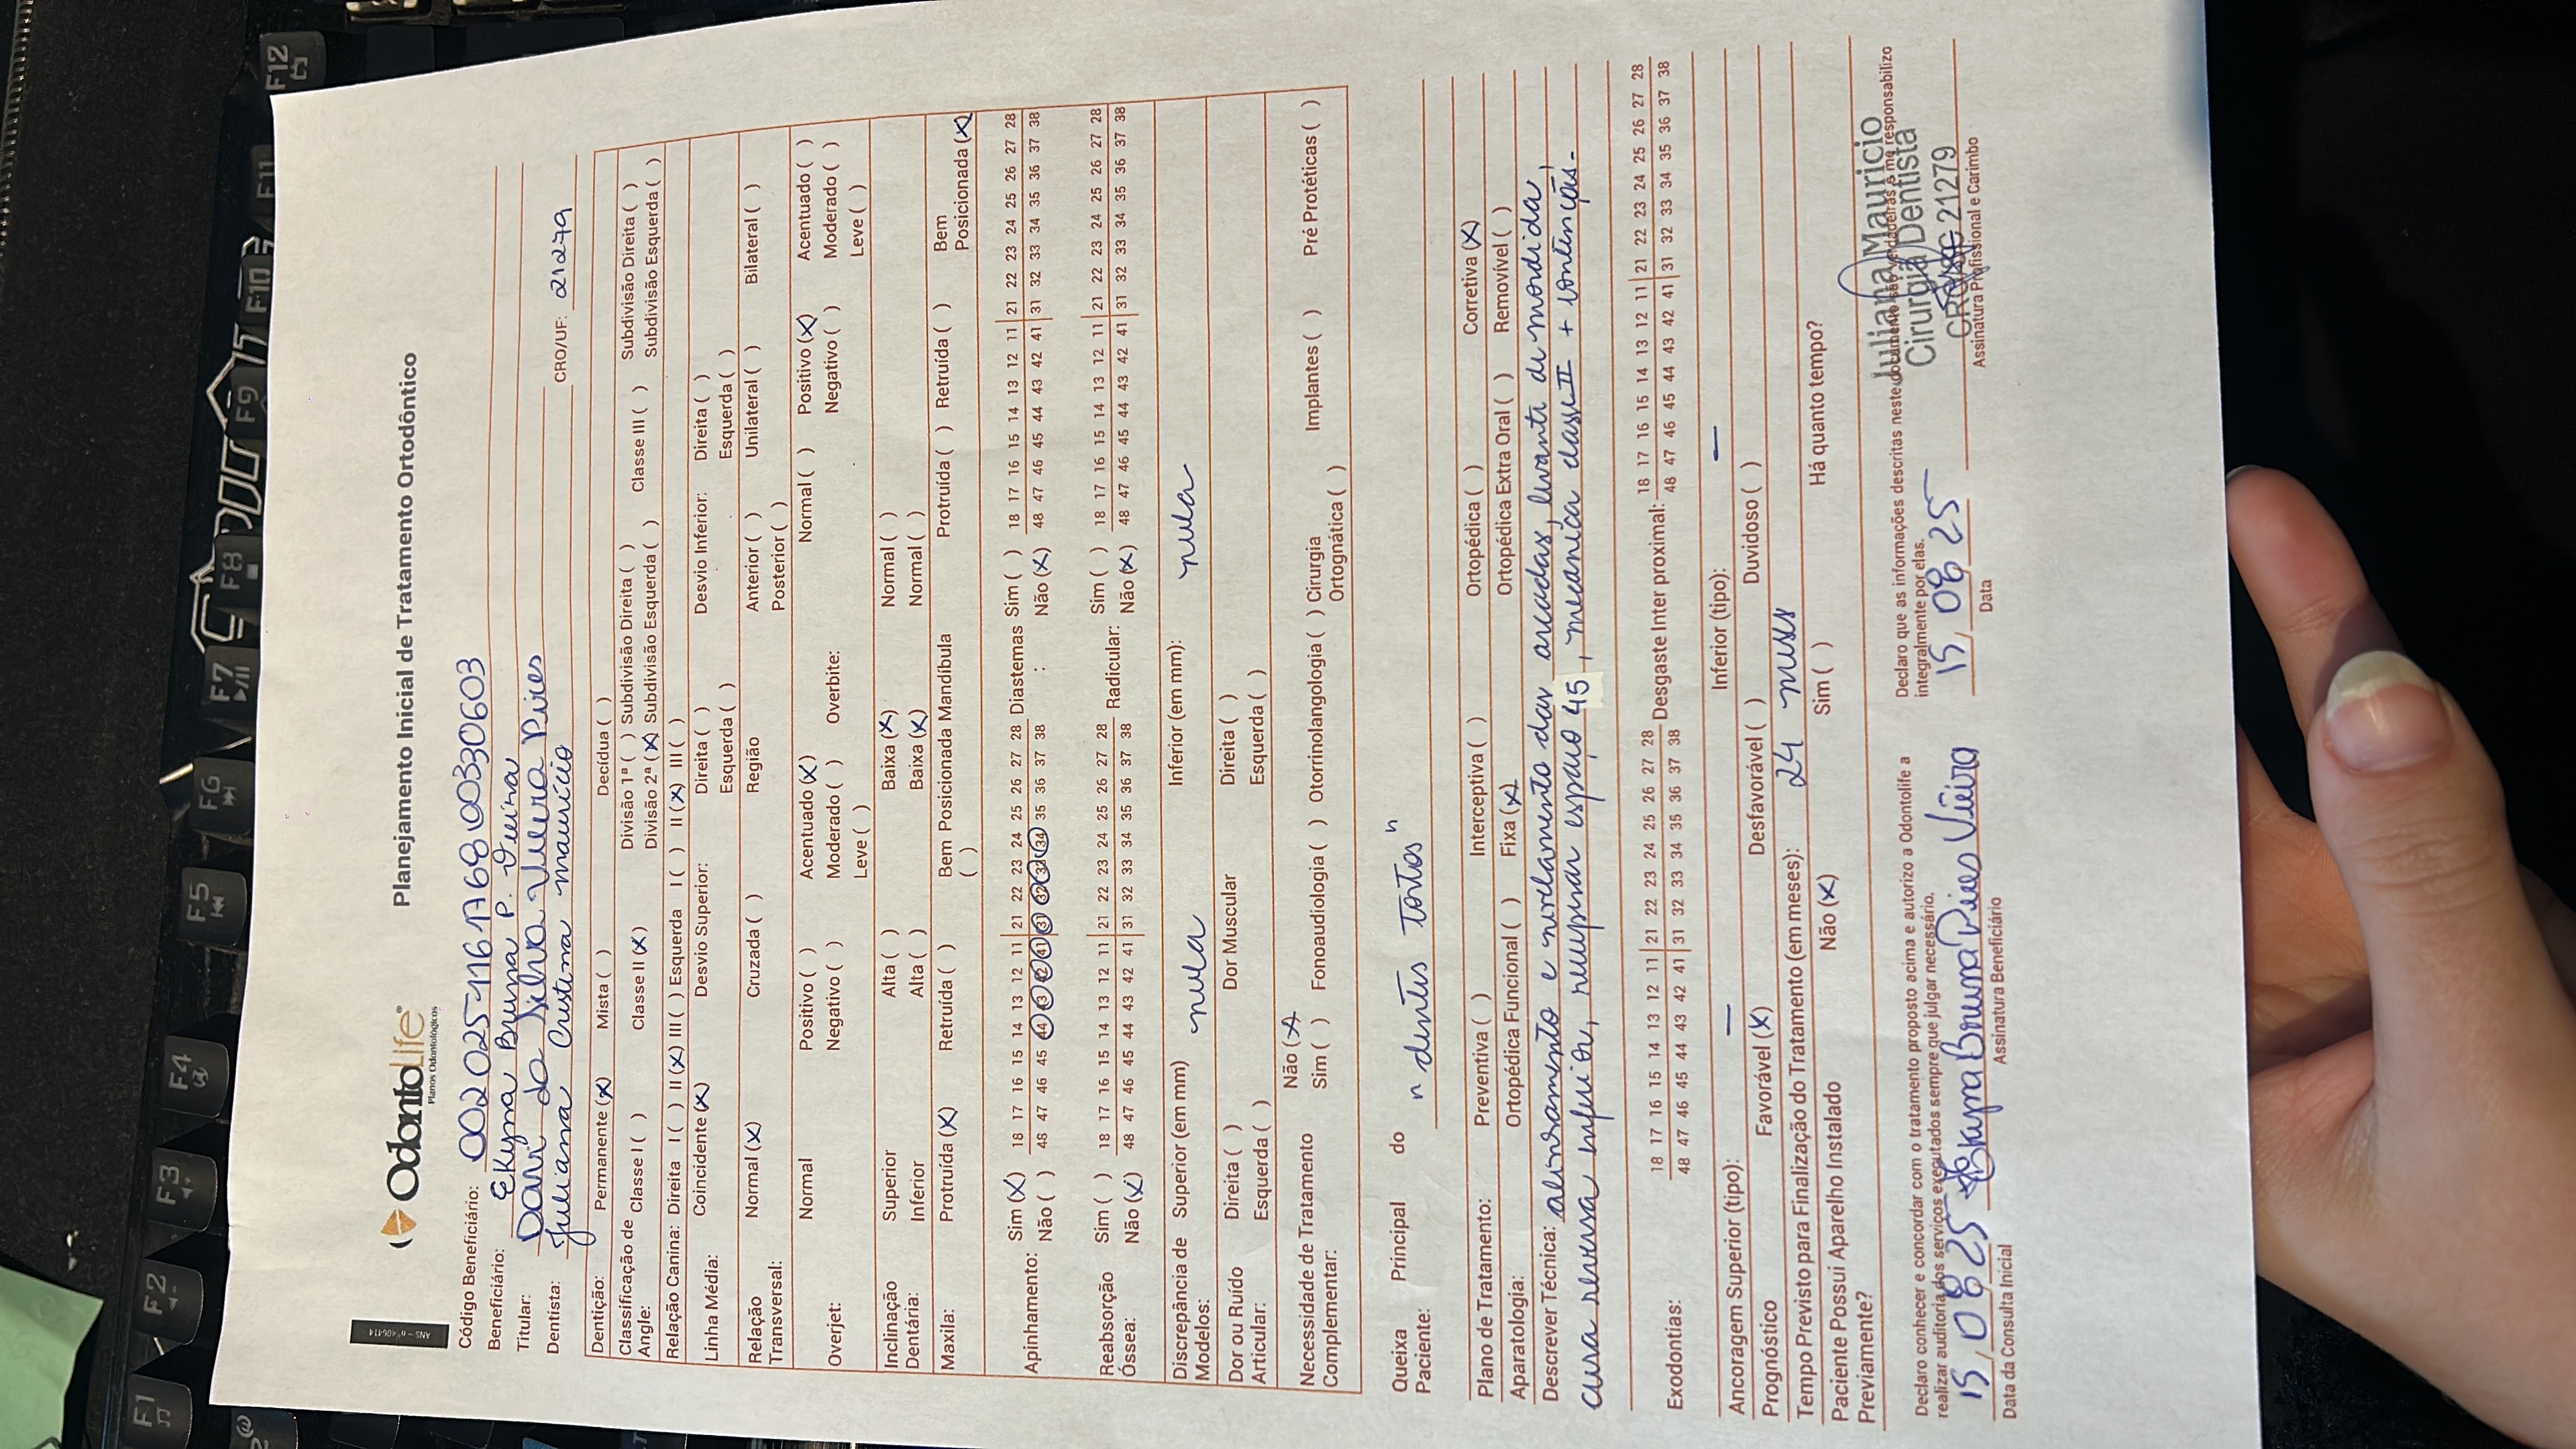 ANS - nº 406414
OdontoLife®
Planos Odontológicos
Planejamento Inicial de Tratamento Ortodôntico
Código Beneficiário: 002025116176800330603
Beneficiário: Ekyma Bruna P. Vieira
Titular: Davi da Silva Vieira Pires
Dentista: Juliana Cristina Maurício CRO/UF: 21279
Dentição: Permanente (X) Mista ( ) Decídua ( )
Classificação de Angle: Classe I ( ) Classe II (X) Divisão 1ª ( ) Subdivisão Direita ( ) Classe III ( ) Subdivisão Direita ( )
Divisão 2ª (X) Subdivisão Esquerda ( ) Subdivisão Esquerda ( )
Relação Canina: Direita I ( ) II (X) III ( ) Esquerda I ( ) II (X) III ( )
Linha Média: Coincidente (X) Desvio Superior: Direita ( ) Desvio Inferior: Direita ( )
Esquerda ( ) Esquerda ( )
Relação Transversal: Normal (X) Cruzada ( ) Região Anterior ( ) Unilateral ( ) Bilateral ( )
Posterior ( )
Overjet: Normal Positivo ( ) Acentuado (X) Overbite: Normal ( ) Positivo (X) Acentuado ( )
Negativo ( ) Moderado ( ) Negativo ( ) Moderado ( )
Leve ( ) Leve ( )
Inclinação Dentária: Superior Alta ( ) Baixa (X) Normal ( )
Inferior Alta ( ) Baixa (X) Normal ( )
Maxila: Protruída (X) Retruída ( ) Bem Posicionada ( ) Mandíbula Protruída ( ) Retruída ( ) Bem Posicionada (X)
Apinhamento: Sim (X) 18 17 16 15 14 13 12 11 | 21 22 23 24 25 26 27 28 Diastemas : Sim ( ) 18 17 16 15 14 13 12 11 | 21 22 23 24 25 26 27 28
Não ( ) 48 47 46 45 44 43 42 41 | 31 32 33 34 35 36 37 38 Não (X) 48 47 46 45 44 43 42 41 | 31 32 33 34 35 36 37 38
Reabsorção Óssea: Sim ( ) 18 17 16 15 14 13 12 11 | 21 22 23 24 25 26 27 28 Radicular: Sim ( ) 18 17 16 15 14 13 12 11 | 21 22 23 24 25 26 27 28
Não (X) 48 47 46 45 44 43 42 41 | 31 32 33 34 35 36 37 38 Não (X) 48 47 46 45 44 43 42 41 | 31 32 33 34 35 36 37 38
Discrepância de Modelos: Superior (em mm) nula Inferior (em mm): nula
Dor ou Ruído Articular: Direita ( ) Dor Muscular Direita ( )
Esquerda ( ) Esquerda ( )
Necessidade de Tratamento Complementar: Não (X)
Sim ( ) Fonoaudiologia ( ) Otorrinolangologia ( ) Cirurgia Ortognática ( ) Implantes ( ) Pré Protéticas ( )
Queixa Principal do Paciente: "dentes tortos"
Plano de Tratamento: Preventiva ( ) Interceptiva ( ) Ortopédica ( ) Corretiva (X)
Aparatologia: Ortopédica Funcional ( ) Fixa (X) Ortopédica Extra Oral ( ) Removível ( )
Descrever Técnica: alinhamento e nivelamento das arcadas, levante de mordida,
curva reversa inferior, recuperar espaço 45, mecânica classe II + contenção.
Exodontias: 18 17 16 15 14 13 12 11 | 21 22 23 24 25 26 27 28 Desgaste Inter proximal: 18 17 16 15 14 13 12 11 | 21 22 23 24 25 26 27 28
48 47 46 45 44 43 42 41 | 31 32 33 34 35 36 37 38 48 47 46 45 44 43 42 41 | 31 32 33 34 35 36 37 38
Ancoragem Superior (tipo): — Inferior (tipo): —
Prognóstico Favorável (X) Desfavorável ( ) Duvidoso ( )
Tempo Previsto para Finalização do Tratamento (em meses): 24 meses
Paciente Possui Aparelho Instalado Previamente? Não (X) Sim ( ) Há quanto tempo?
Declaro conhecer e concordar com o tratamento proposto acima e autorizo a Odontolife a
realizar auditoria dos serviços executados sempre que julgar necessário.
Declaro que as informações descritas neste documento são verdadeiras e me responsabilizo
integralmente por elas.
15/08/25 Ekyma Bruna Pires Vieira
15/08/25
Juliana Maurício
Cirurgiã Dentista
21279
Data da Consulta Inicial
Assinatura Beneficiário
Data
Assinatura Profissional e Carimbo
F1
F2
F4
F5
F6
F7
F8
F9
F10
F11
F12